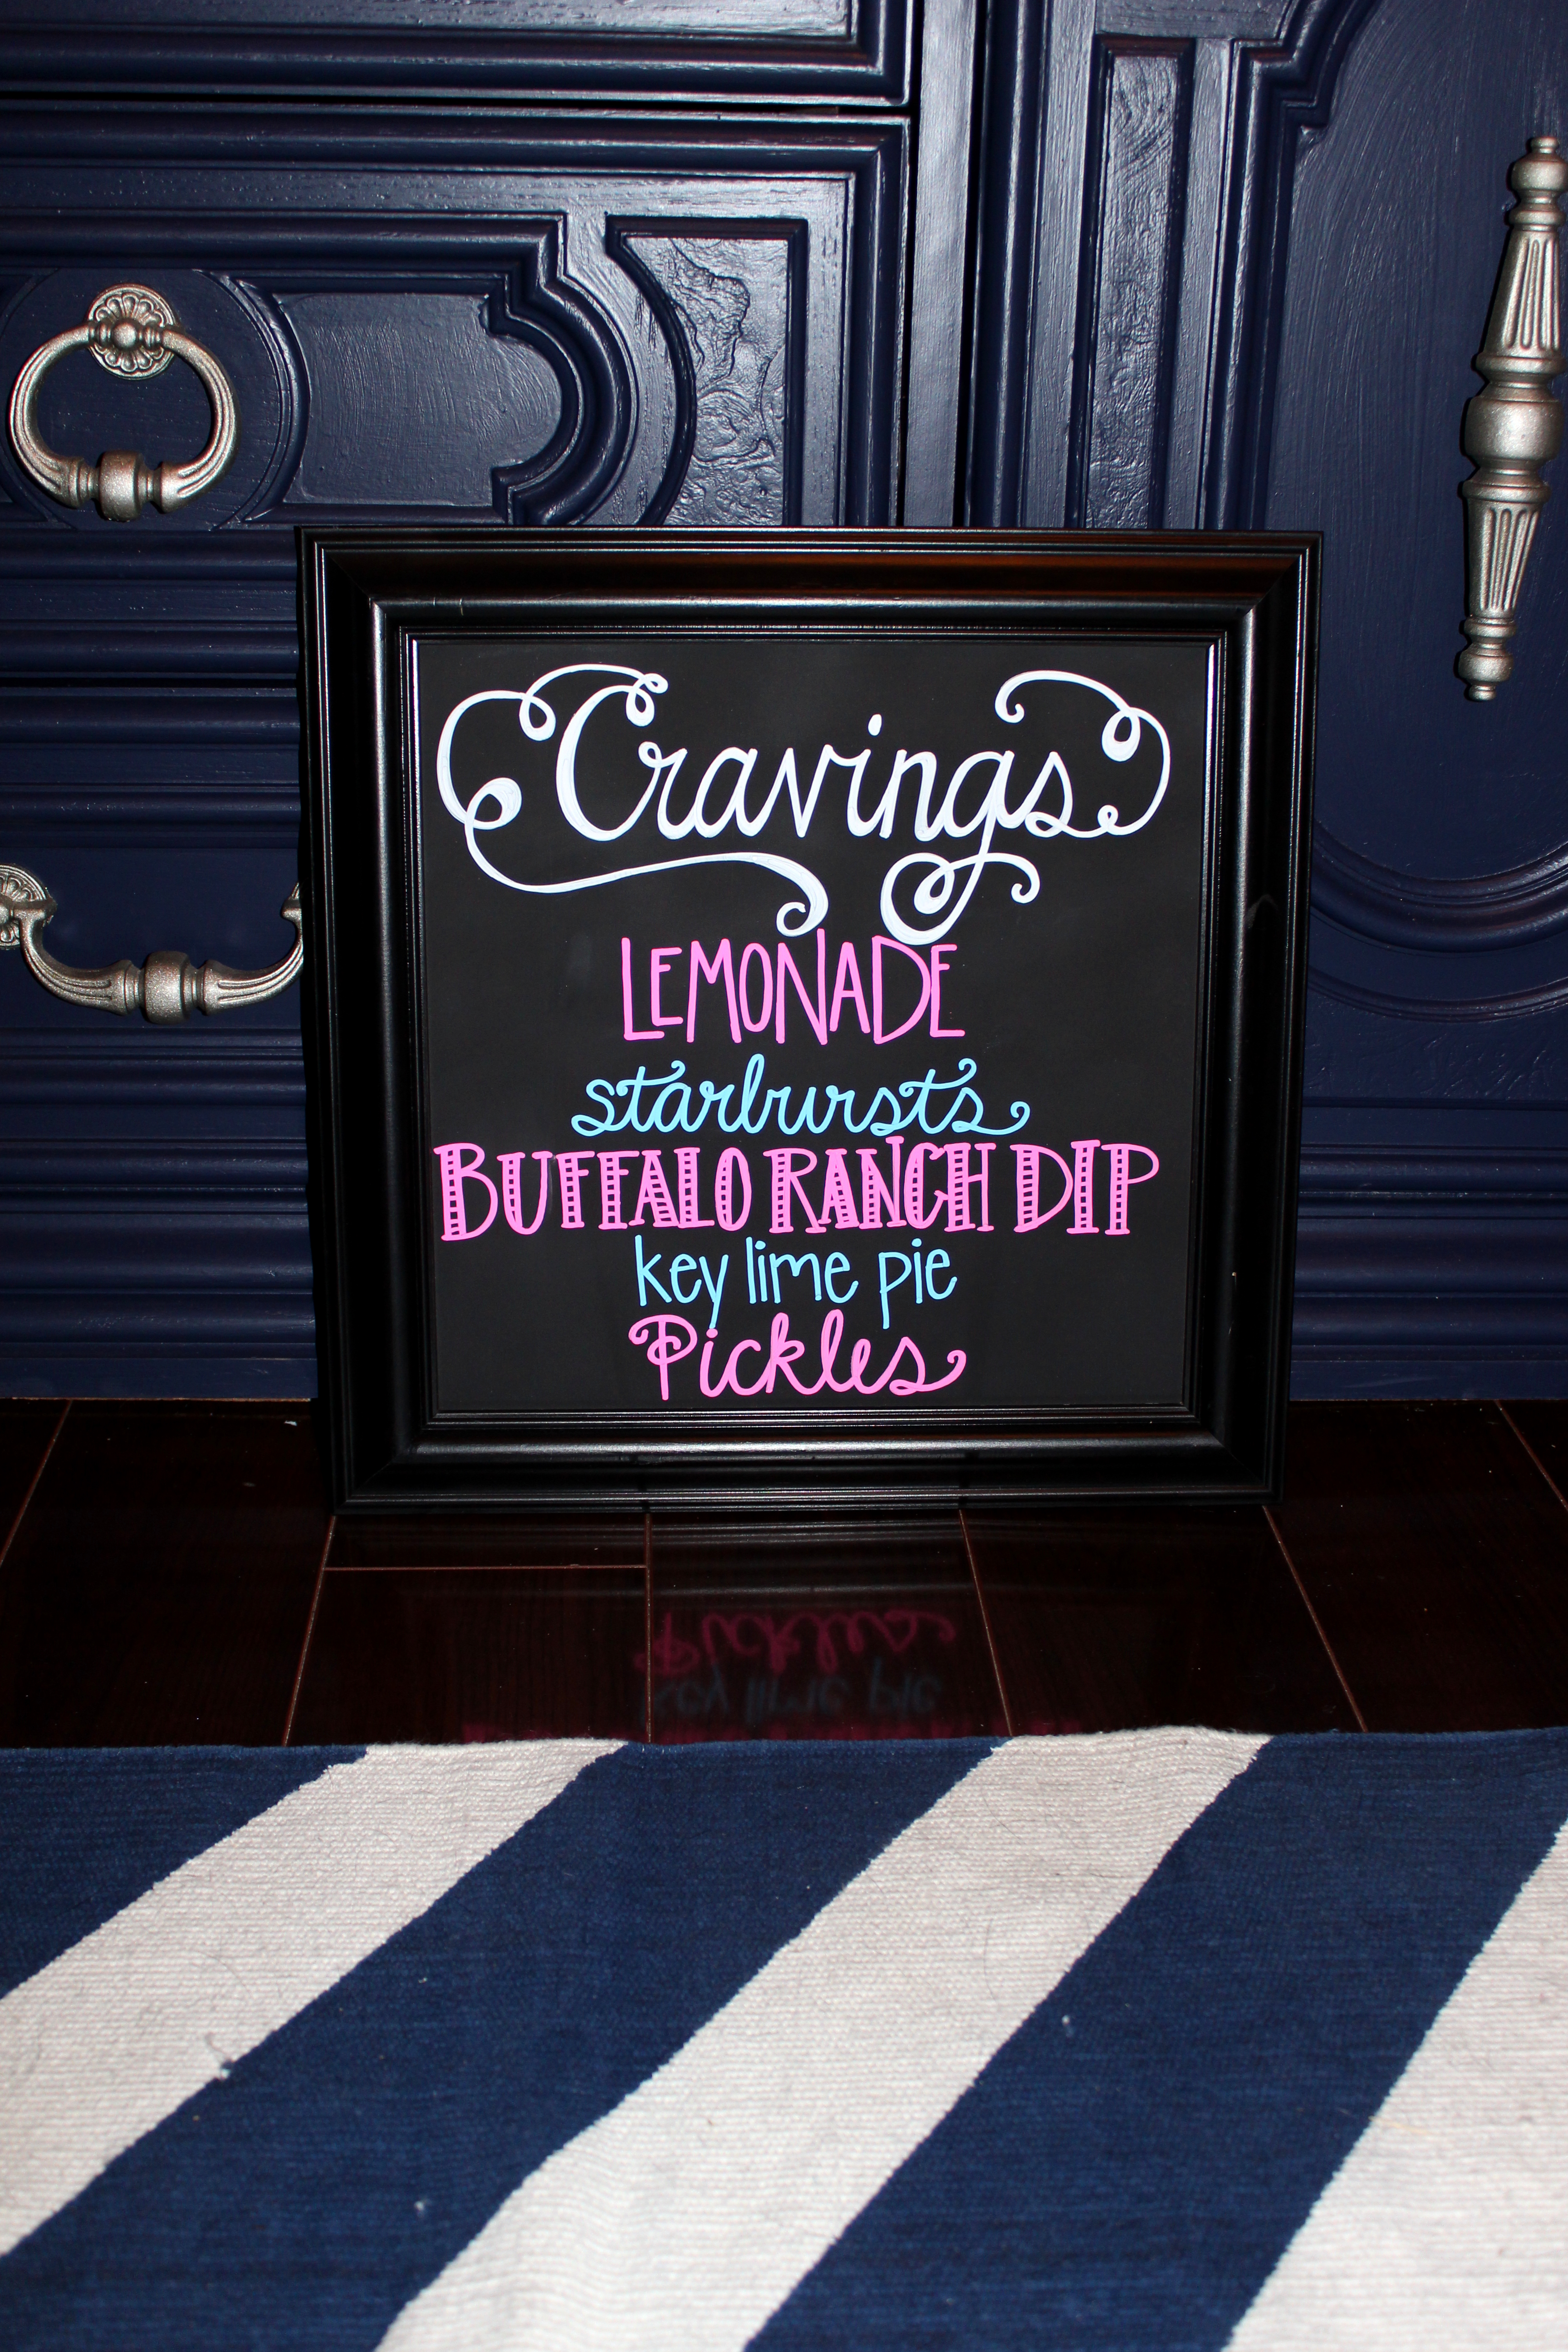 Cravings
LEMONADE
starbursts
BUFFALO RANCH DIP
key lime pie
Pickles